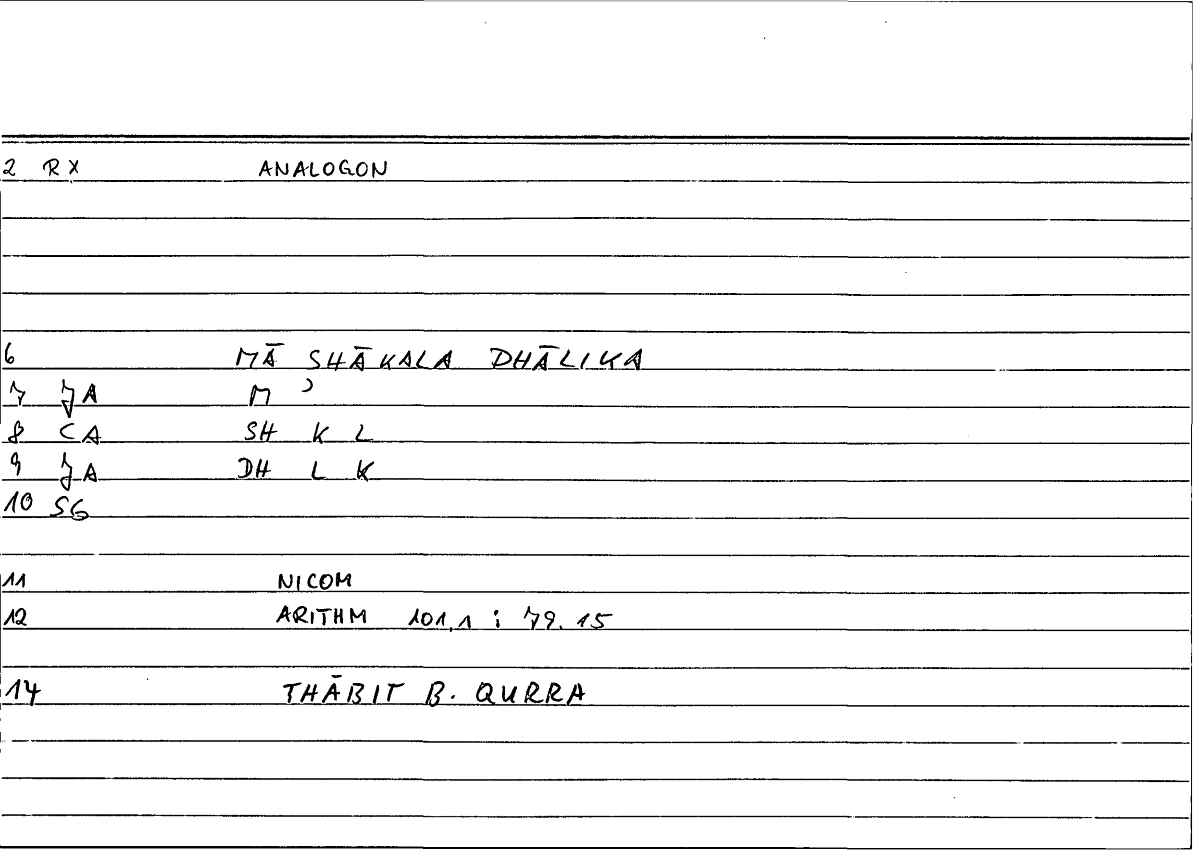 2 RX ANALOGON
6 MĀ SHĀKALA DHĀLIKA
7 JA M ʾ
8 CA SH K L
9 JA DH L K
10 SG
11 NICOM
12 ARITHM 101,1 : 79.15
14 THĀBIT B. QURRA